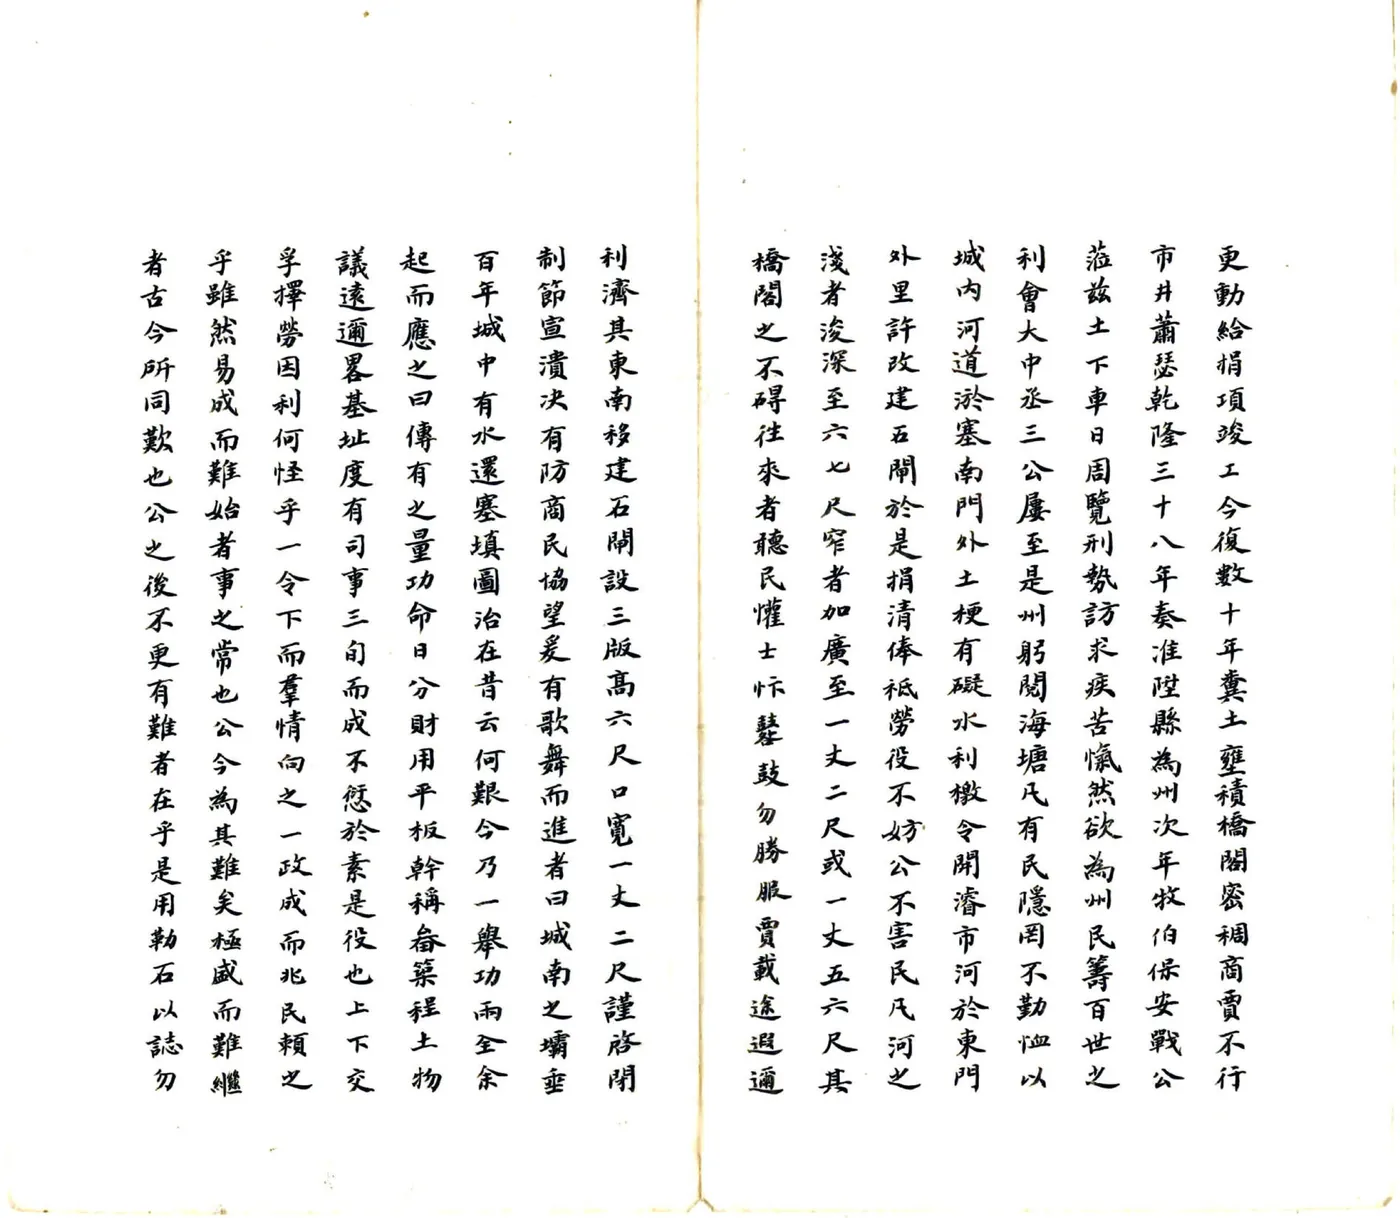 更動給捐項竣工今復數十年糞土壅積橋閣密稠商賈不行
市井蕭瑟乾隆三十八年奏准陞縣為州次年牧伯保安戰公
蒞兹土下車日周覽刑勢訪求疾苦愾然欲為州民籌百世之
利會大中丞三公屢至是州躬閱海塘凡有民隱罔不勤恤以
城内河道淤塞南門外土梗有礙水利檄令開濬市河於東門
外里許改建石閘於是捐清俸祗勞役不妨公不害民凡河之
淺者浚深至六七尺窄者加廣至一丈二尺或一丈五六尺其
橋閣之不碍徃來者聽民懽士忭鼛鼓勿勝服賈載途遐邇
利濟其東南移建石閘設三版髙六尺口寬一丈二尺謹啓閉
制節宣潰决有防商民協望爰有歌舞而進者曰城南之壩垂
百年城中有水還塞填圖治在昔云何艱今乃一舉功兩全余
起而應之曰傳有之量功命日分財用平板幹稱畚築程土物
議遠邇畧基址度有司事三旬而成不愆於素是役也上下交
孚擇勞因利何怪乎一令下而羣情向之一政成而兆民頼之
乎雖然易成而難始者事之常也公今為其難矣極盛而難繼
者古今所同歎也公之後不更有難者在乎是用勒石以誌勿